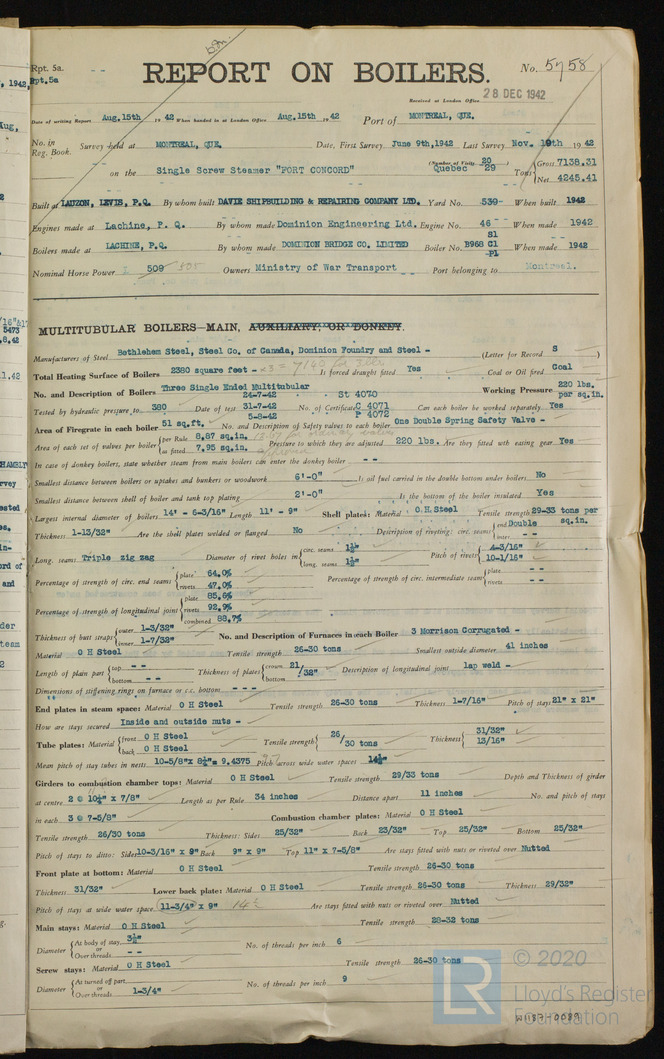 Rpt. 5a.
Rpt.5a
REPORT ON BOILERS.
No. 5758
Received at London Office
28 DEC 1942
Date of writing Report Aug.15th 1942 When handed in at London Office Aug.15th 1942 Port of MONTREAL, QUE.
No. in Reg. Book. Survey held at MONTREAL, QUE. Date, First Survey June 9th,1942 Last Survey Nov. 19th 1942
on the Single Screw Steamer "FORT CONCORD" (Number of Visits 20 Quebec 29 Tons Gross 7138.31 Net 4245.41
Built at LAUZON, LEVIS, P.Q. By whom built DAVIE SHIPBUILDING & REPAIRING COMPANY LTD. Yard No. 539- When built 1942
Engines made at Lachine, P. Q. By whom made Dominion Engineering Ltd. Engine No. 46 When made 1942
Boilers made at LACHINE, P.Q. By whom made DOMINION BRIDGE CO. LIMITED Boiler No. B968 S1 C1 P1 When made 1942
Nominal Horse Power 509 Owners Ministry of War Transport Port belonging to Montreal.
MULTITUBULAR BOILERS—MAIN, AUXILIARY, OR DONKEY.
Manufacturers of Steel Bethlehem Steel, Steel Co. of Canada, Dominion Foundry and Steel - (Letter for Record S )
Total Heating Surface of Boilers 2380 square feet - Is forced draught fitted Yes Coal or Oil fired Coal
No. and Description of Boilers Three Single Ended Multitubular Working Pressure 220 lbs. per sq.in.
Tested by hydraulic pressure to 380 Date of test 24-7-42 31-7-42 5-8-42 No. of Certificate St 4070 C 4071 P 4072 Can each boiler be worked separately Yes
Area of Firegrate in each boiler 51 sq.ft. No. and Description of Safety valves to each boiler One Double Spring Safety Valve -
Area of each set of valves per boiler per Rule 8.87 sq.in. as fitted 7.95 sq.in. Pressure to which they are adjusted 220 lbs. Are they fitted with easing gear Yes
In case of donkey boilers, state whether steam from main boilers can enter the donkey boiler - -
Smallest distance between boilers or uptakes and bunkers or woodwork 6'-0" Is oil fuel carried in the double bottom under boilers No
Smallest distance between shell of boiler and tank top plating 2'-0" Is the bottom of the boiler insulated Yes
Largest internal diameter of boilers 14' - 6-3/16" Length 11' - 9" Shell plates: Material O.H.Steel Tensile strength 29-33 tons per sq.in.
Thickness 1-13/32" Are the shell plates welded or flanged No Description of riveting: circ. seams end Double inter. - -
Long. seams Triple zig zag Diameter of rivet holes in circ. seams 1½" long. seams 1½" Pitch of rivets 4-3/16" 10-1/16"
Percentage of strength of circ. end seams plate 64.0% rivets 47.0% Percentage of strength of circ. intermediate seam plate - - rivets - -
Percentage of strength of longitudinal joint plate 85.6% rivets 92.9% combined 88.7%
Thickness of butt straps outer 1-3/32" inner 1-7/32" No. and Description of Furnaces in each Boiler 3 Morrison Corrugated -
Material O H Steel Tensile strength 26-30 tons Smallest outside diameter 41 inches
Length of plain part top - - bottom - - Thickness of plates crown bottom 21/32" Description of longitudinal joint lap weld -
Dimensions of stiffening rings on furnace or c.c. bottom - - -
End plates in steam space: Material O H Steel Tensile strength 26-30 tons Thickness 1-7/16" Pitch of stays 21" x 21"
How are stays secured Inside and outside nuts -
Tube plates: Material front O H Steel back O H Steel Tensile strength 26/30 tons Thickness 31/32" 13/16"
Mean pitch of stay tubes in nests 10-5/8"x 8¼"= 9.4375 Pitch across wide water spaces 14½"
Girders to combustion chamber tops: Material O H Steel Tensile strength 29/33 tons Depth and Thickness of girder
at centre 2 @ 10½" x 7/8" Length as per Rule 34 inches Distance apart 11 inches No. and pitch of stays
in each 3 @ 7-5/8" Combustion chamber plates: Material O H Steel
Tensile strength 26/30 tons Thickness: Sides 25/32" Back 23/32" Top 25/32" Bottom 25/32"
Pitch of stays to ditto: Sides 10-3/16" x 9" Back 9" x 9" Top 11" x 7-5/8" Are stays fitted with nuts or riveted over Nutted
Front plate at bottom: Material O H Steel Tensile strength 26-30 tons
Thickness 31/32" Lower back plate: Material O H Steel Tensile strength 26-30 tons Thickness 29/32"
Pitch of stays at wide water space 11-3/4" x 9" Are stays fitted with nuts or riveted over Nutted
Main stays: Material O H Steel Tensile strength 28-32 tons
Diameter At body of stay 3¼" or Over threads - - No. of threads per inch 6
Screw stays: Material O H Steel Tensile strength 26-30 tons
Diameter At turned off part or Over threads 1-3/4" No. of threads per inch 9
© 2020
Lloyd's Register
Foundation
W1187-0089